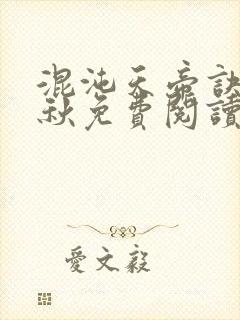 混沌天帝訣
秋免費閱讀
愛文毅